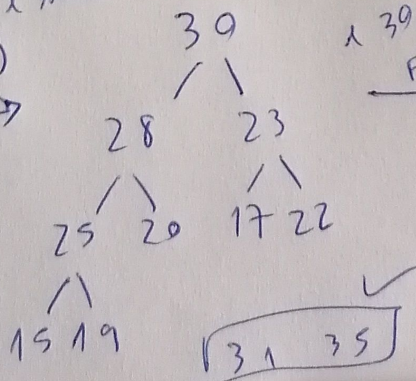 39
1 39
28 23
25 20 17 22
15 19
31 35